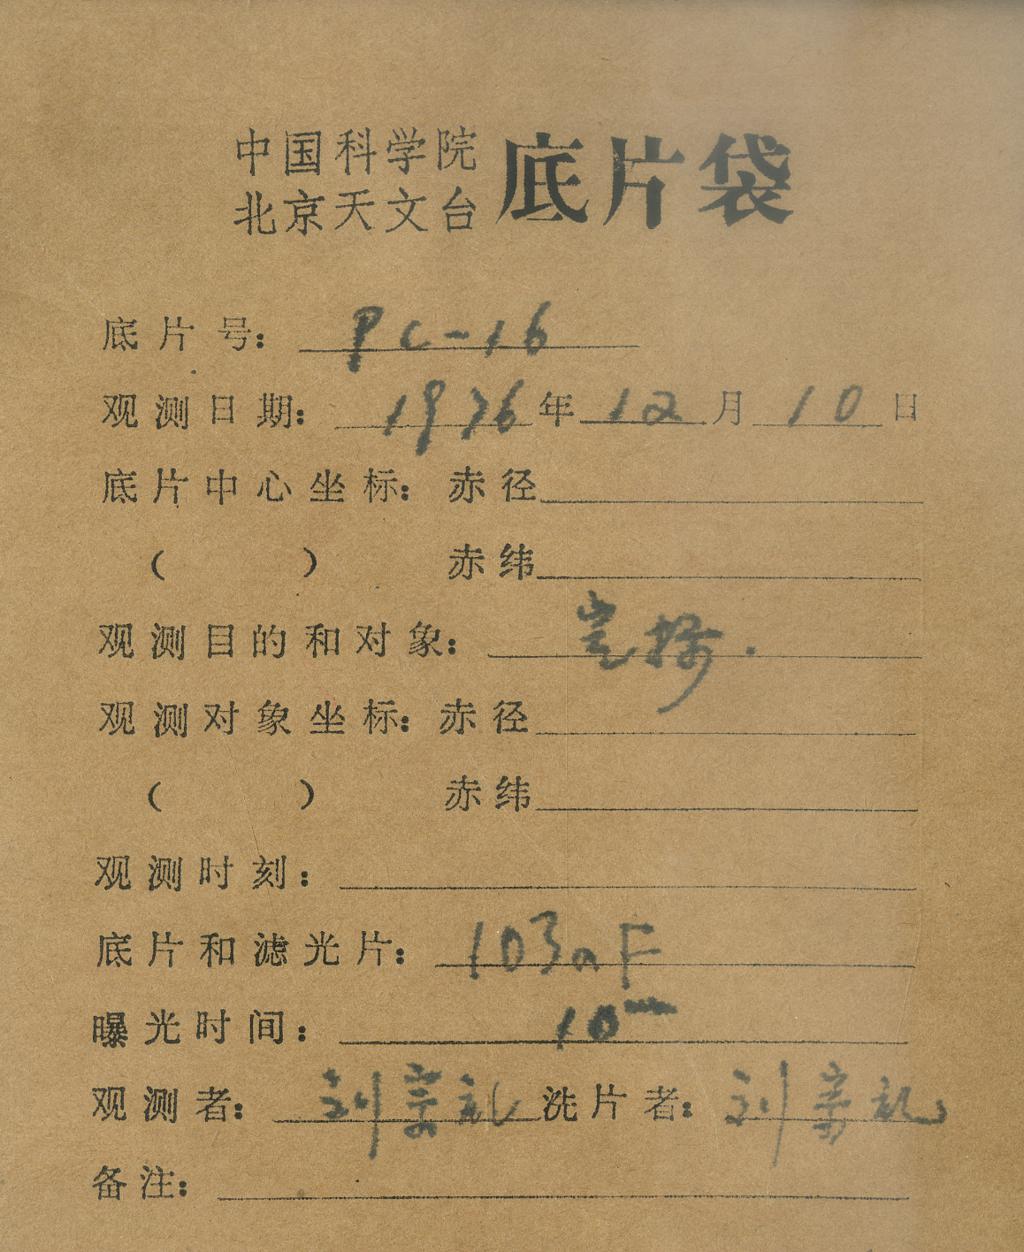 中国科学院
北京天文台 底片袋
底片号: PC-16
观测日期: 1976年12月10日
底片中心坐标: 赤径
( ) 赤纬
观测目的和对象:
观测对象坐标: 赤径
( ) 赤纬
观测时刻:
底片和滤光片: 103aF
曝光时间: 10ᵐ
观测者: 刘宗礼 洗片者: 刘宗礼
备注: